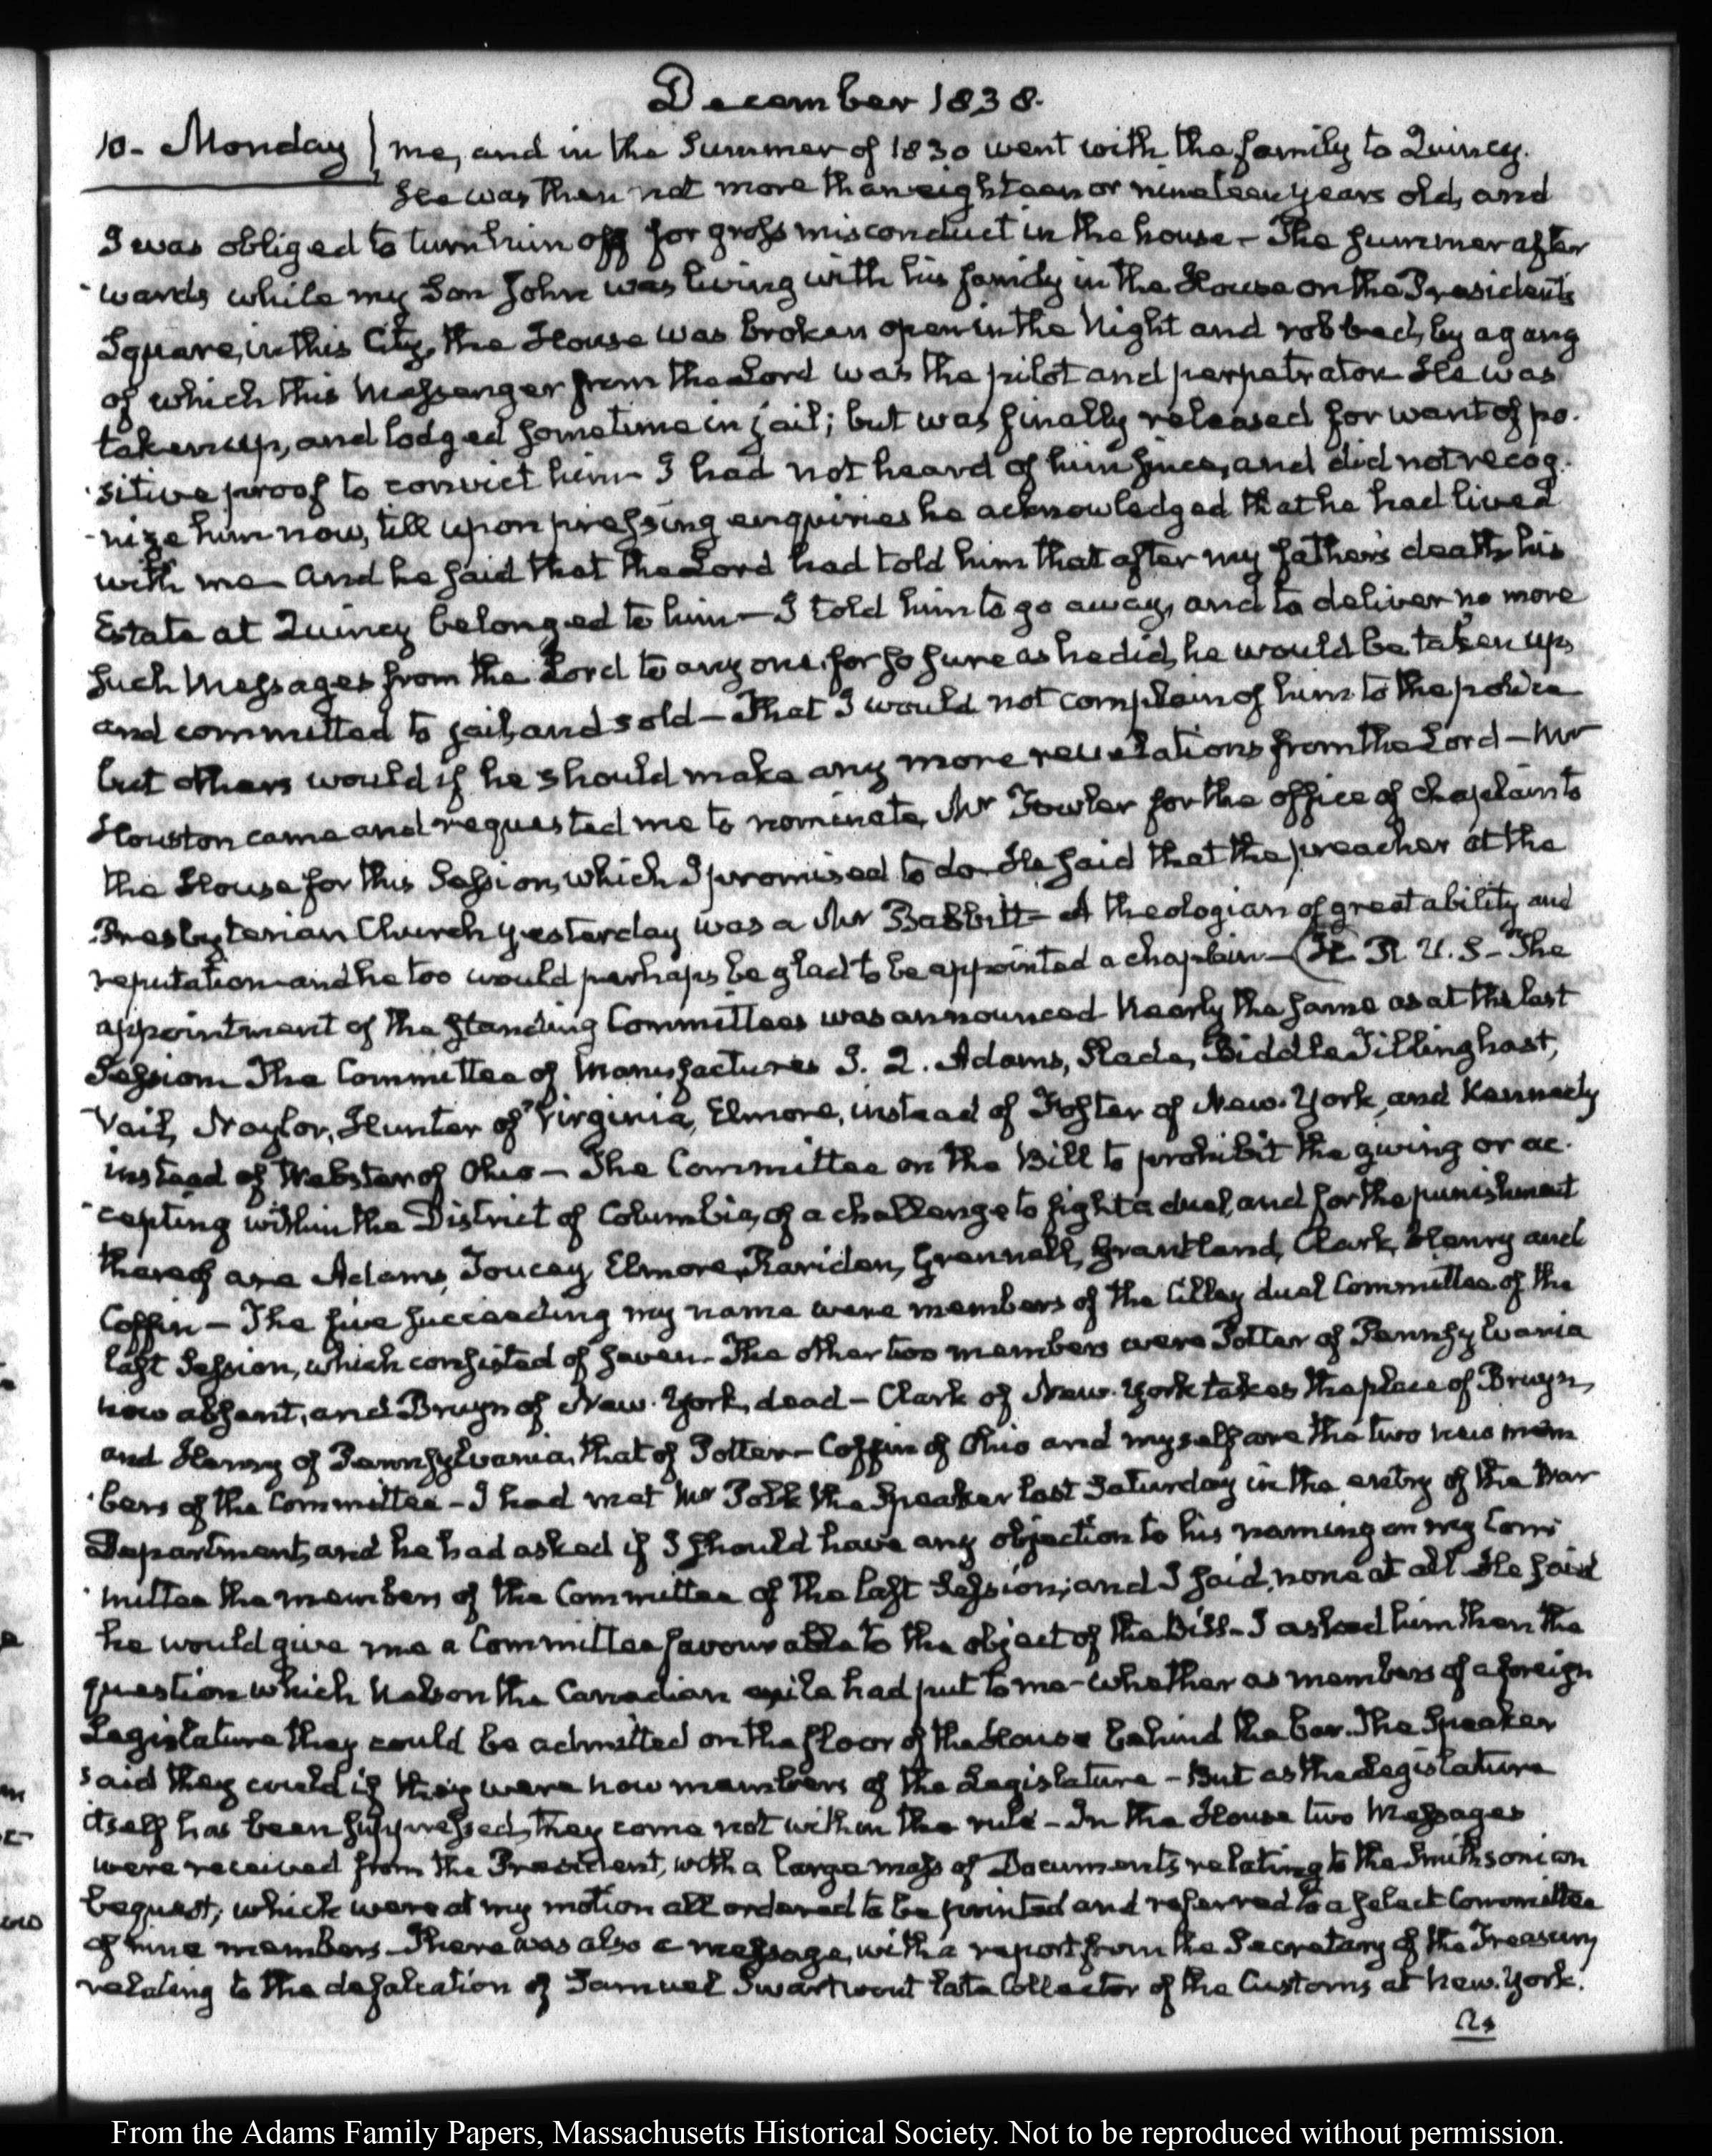 December 1838.
10- Monday } me, and in the Summer of 1830 went with the family to Quincy.
He was then not more than eighteen or nineteen years old, and
I was obliged to turn him off for gross misconduct in the house - The summer after
-wards, while my Son John was living with his family in the House on the Presidents
Square, in this City, the House was broken open in the Night and robbed, by a gang
of which this Messenger from the Lord was the pilot and perpetrator He was
taken up, and lodged sometime in jail; but was finally released for want of po-
-sitive proof to convict him - I had not heard of him since, and did not recog-
-nize him now, till upon pressing enquiries he acknowledged that he had lived
with me - and he said that the Lord had told him that after my father's death, his
Estate at Quincy belonged to him - I told him to go away, and to deliver no more
such Messages from the Lord to any one, for so sure as he did, he would be taken up,
and committed to jail, and sold - That I would not complain of him to the police
but others would if he should make any more revelations from the Lord - Mr
Houston came and requested me to nominate, Mr Fowler for the office of Chaplain to
the House for this Session, which I promised to do - He said that the preacher at the
Presbyterian Church yesterday was a Mr Babbitt - A theologian of great ability and
reputation - and he too would perhaps be glad to be appointed a chaplain - (H. R. U. S - The
appointment of the standing Committees was announced - Nearly the same as at the last
Session - The Committee of Manufactures J. Q. Adams, Slade, Biddle Tillinghast,
Vail, Naylor, Hunter of Virginia, Elmore, instead of Foster of New-York, and Kennedy
instead of Webster of Ohio - The Committee on the Bill to prohibit the giving or ac-
-cepting within the District of Columbia, of a challenge to fight a duel, and for the punishment
thereof are Adams, Toucey, Elmore, Rariden, Grennell, Grantland, Clark, Henry and
Coffin - The five succeeding my name were members of the Cilley duel Committee of the
last Session, which consisted of seven - The other two members were Potter of Pennsylvania
now absent, and Bruyn of New-York, dead - Clark of New-York takes the place of Bruyn,
and Henry of Pennsylvania, that of Potter - Coffin of Ohio and myself are the two new mem
-bers of the Committee - I had met Mr Polk the Speaker last Saturday in the entry of the War
Department, and he had asked if I should have any objection to his naming on my Com-
-mittee the members of the Committee of the last Session; and I said, none at all - He said
he would give me a Committee favourable to the object of the Bill - I asked him then the
question which Nelson the Canadian exile had put to me - whether as members of a foreign
Legislature they could be admitted on the floor of the House behind the bar. The Speaker
said they could if they were now members of the Legislature - But as the Legislature
itself has been suppressed, they come not within the rule - In the House two Messages
were received from the President, with a large mass of Documents relating to the Smithsonian
bequest; which were at my motion all ordered to be printed and referred to a select Committee
of nine members - There was also a message, with a report from the Secretary of the Treasury
relating to the defalcation of Samuel Swartwout late Collector of the Customs at New-York.
As
From the Adams Family Papers, Massachusetts Historical Society. Not to be reproduced without permission.